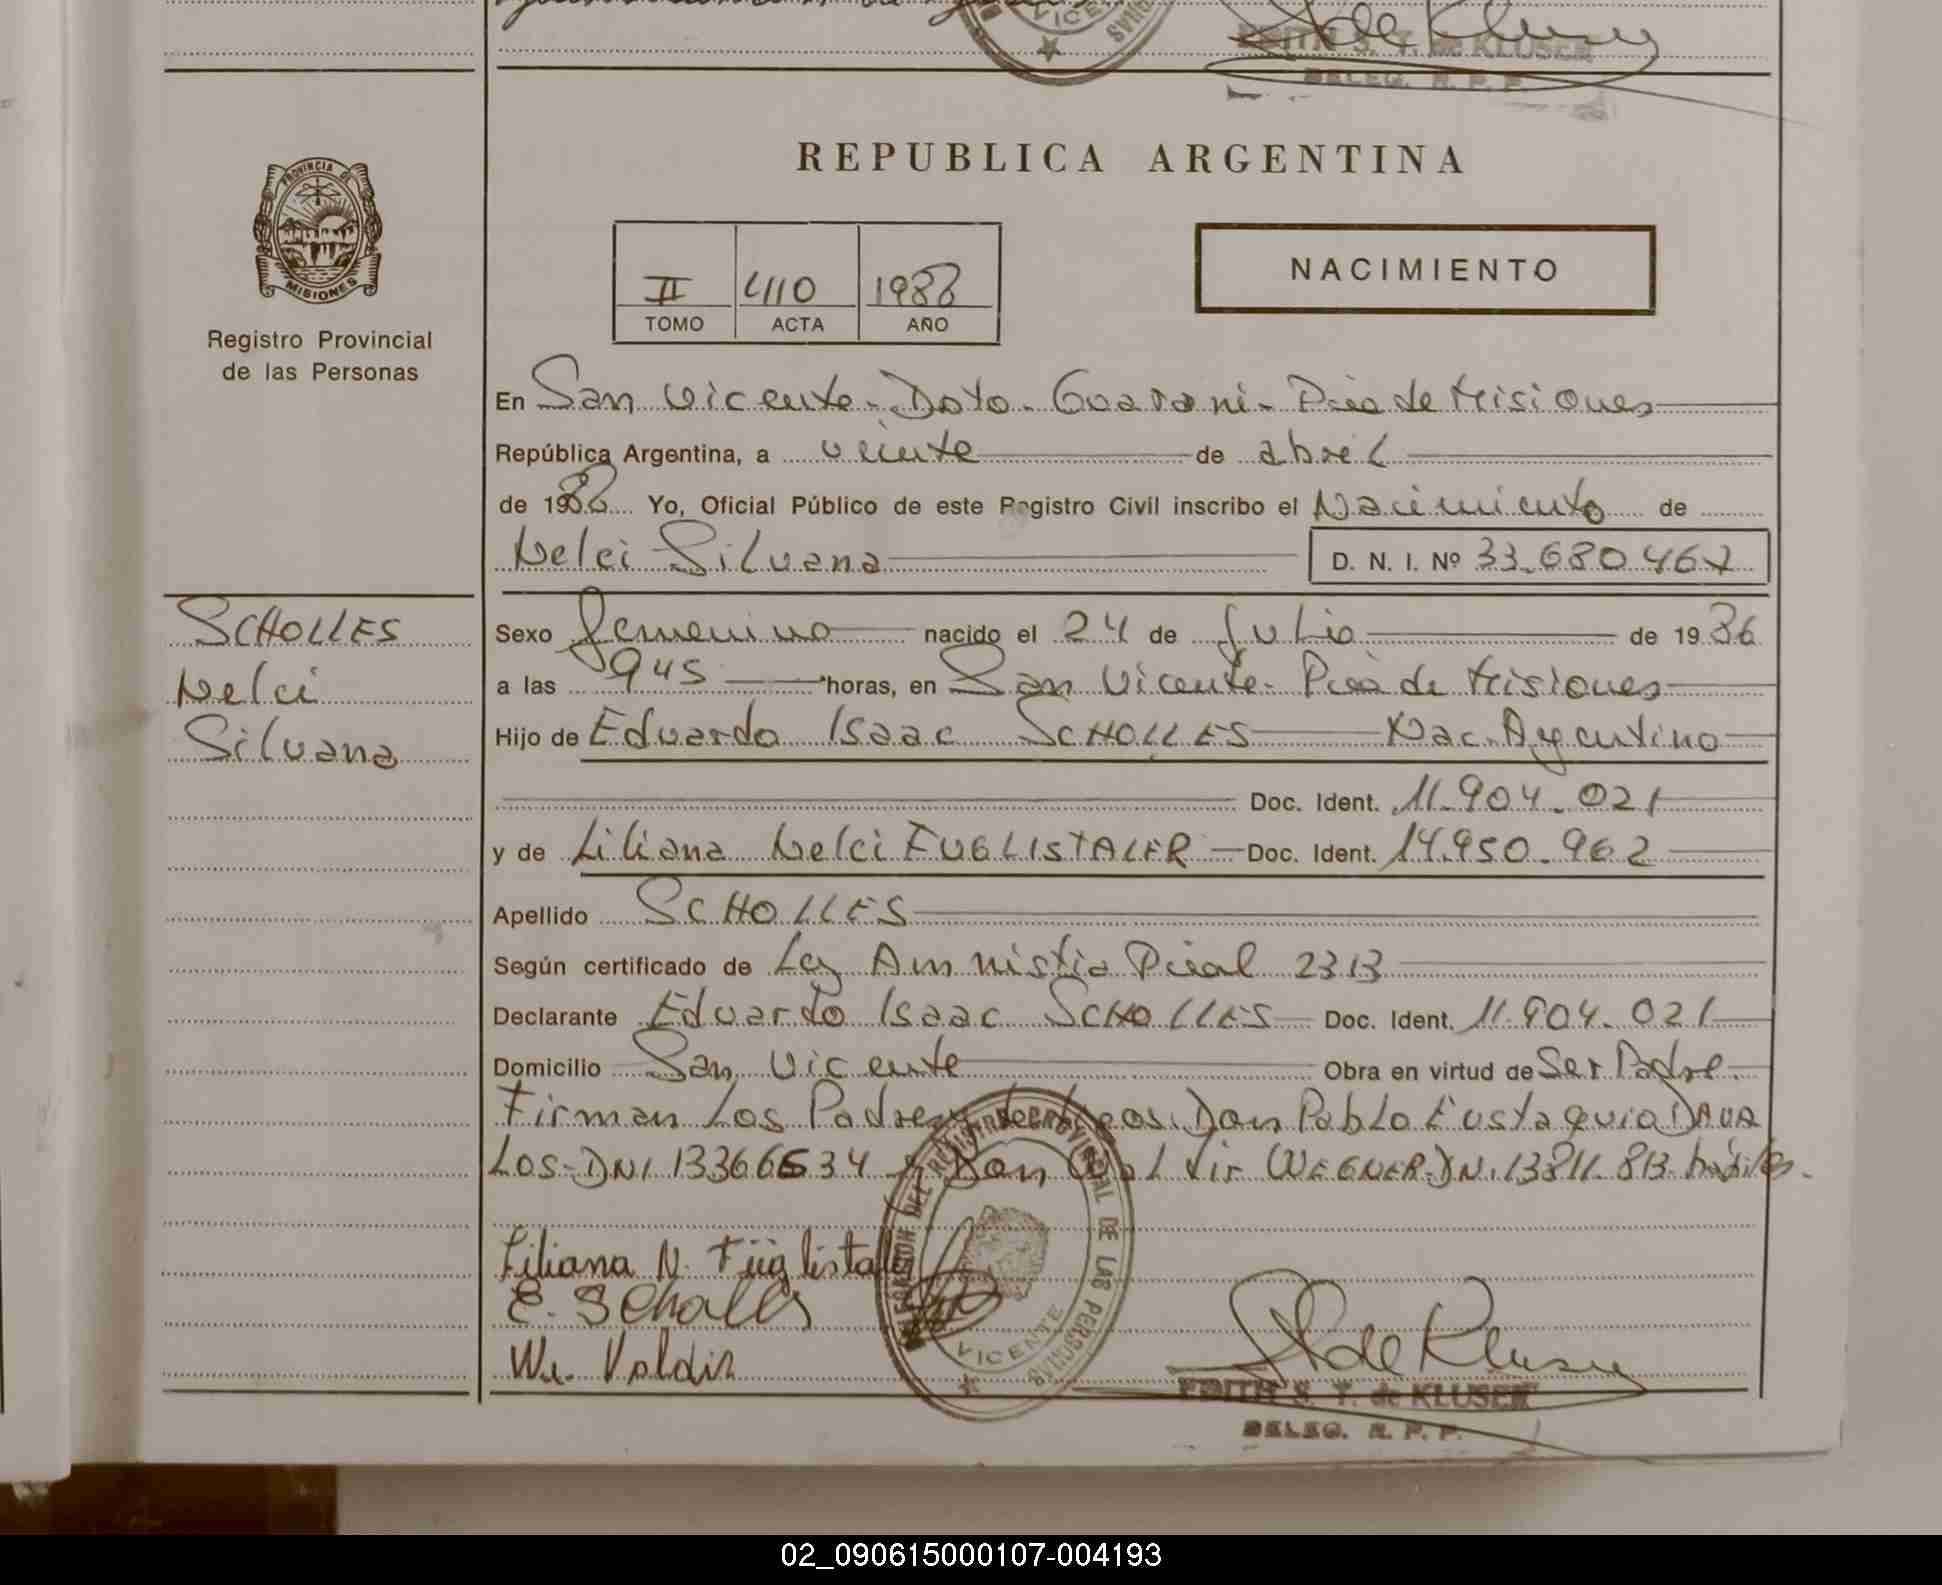 VICE
EDITH S. T. de KLUSER
DELEG. R. P. P.
REPUBLICA ARGENTINA
PROVINCIA DE
MISIONES
Registro Provincial
de las Personas
II 4110 1988
TOMO ACTA AÑO
NACIMIENTO
En San Vicente - Dpto. Guarani - Pcia de Misiones
República Argentina, a veinte de abril
de 1988 Yo, Oficial Público de este Registro Civil inscribo el Nacimiento de
Nelci Silvana D. N. I. Nº 33.680.467
SCHOLLES
Nelci
Silvana
Sexo femenino nacido el 24 de Julio de 1986
a las 945 horas, en San Vicente - Pcia de Misiones
Hijo de Eduardo Isaac SCHOLLES Nac. Argentino
Doc. Ident. 11.904.021
y de Liliana Nelci FUGLISTALER Doc. Ident. 14.950.962
Apellido SCHOLLES
Según certificado de Ley Amnistia Pcial 2313
Declarante Eduardo Isaac SCHOLLES Doc. Ident. 11.904.021
Domicilio San Vicente Obra en virtud de Ser Padre.
Firman Los Padres y testigos. Don Pablo Eustaquio DAVA
LOS - DNI 13366634 y Don Valdir WEGNER - DNI. 13811.813 hábiles.
Liliana N. Füglistaler
E. Scholles
We. Valdir
DELEGACION DEL REGISTRO PROVINCIAL DE LAS PERSONAS
VICENTE
EDITH S. T. de KLUSER
DELEG. R. P. P.
02_090615000107-004193